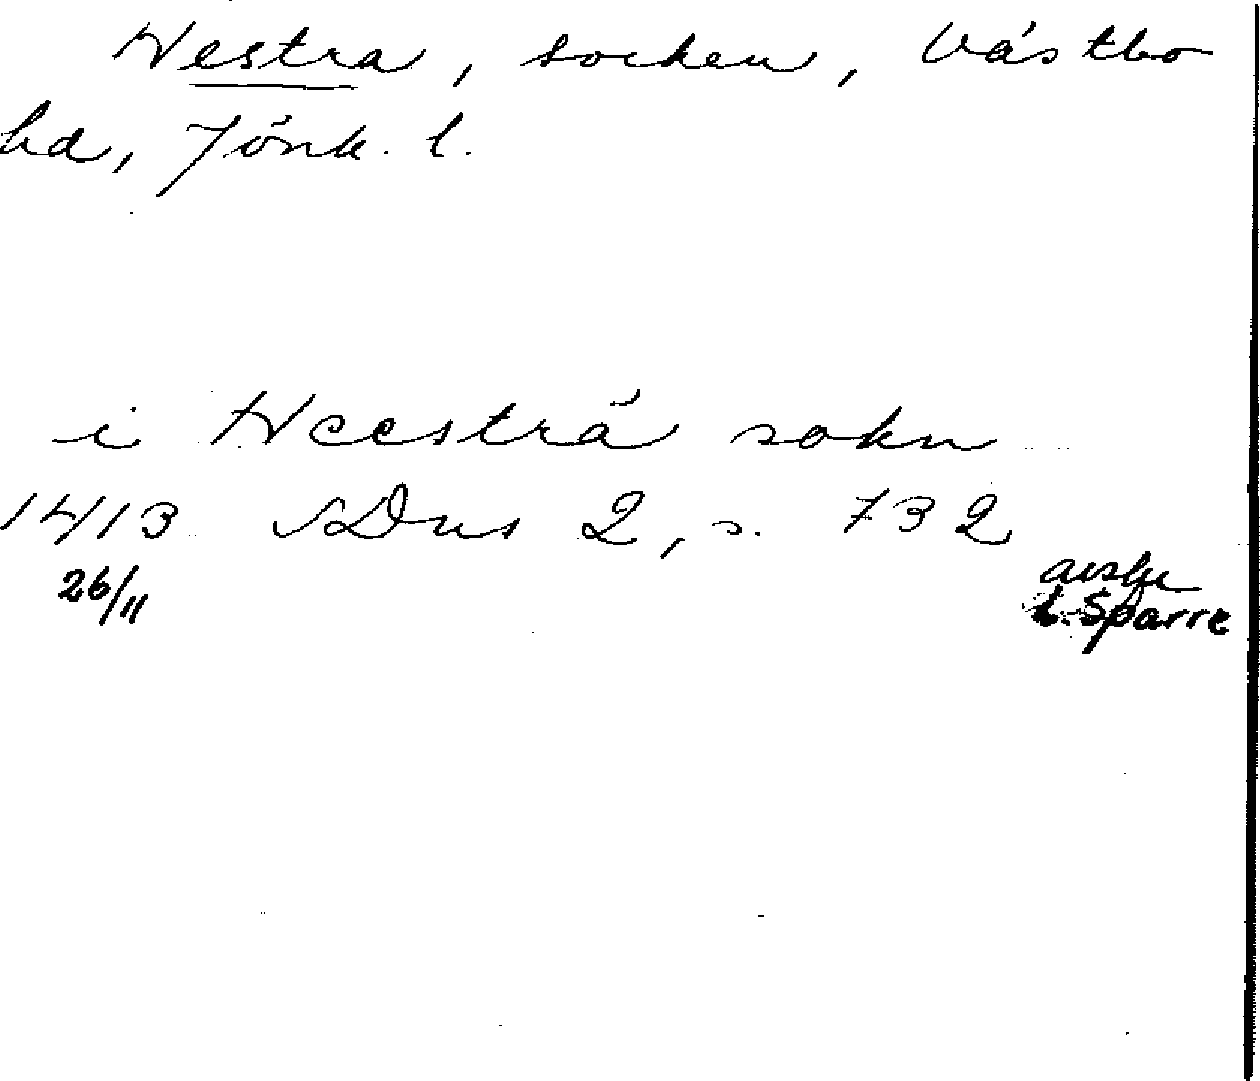 Hestra, socken, Västbo
hd, Jönk. l.
i Heesträ sokn
1413 SDns 2, s. 732
26/11
avskr
L. Sparre